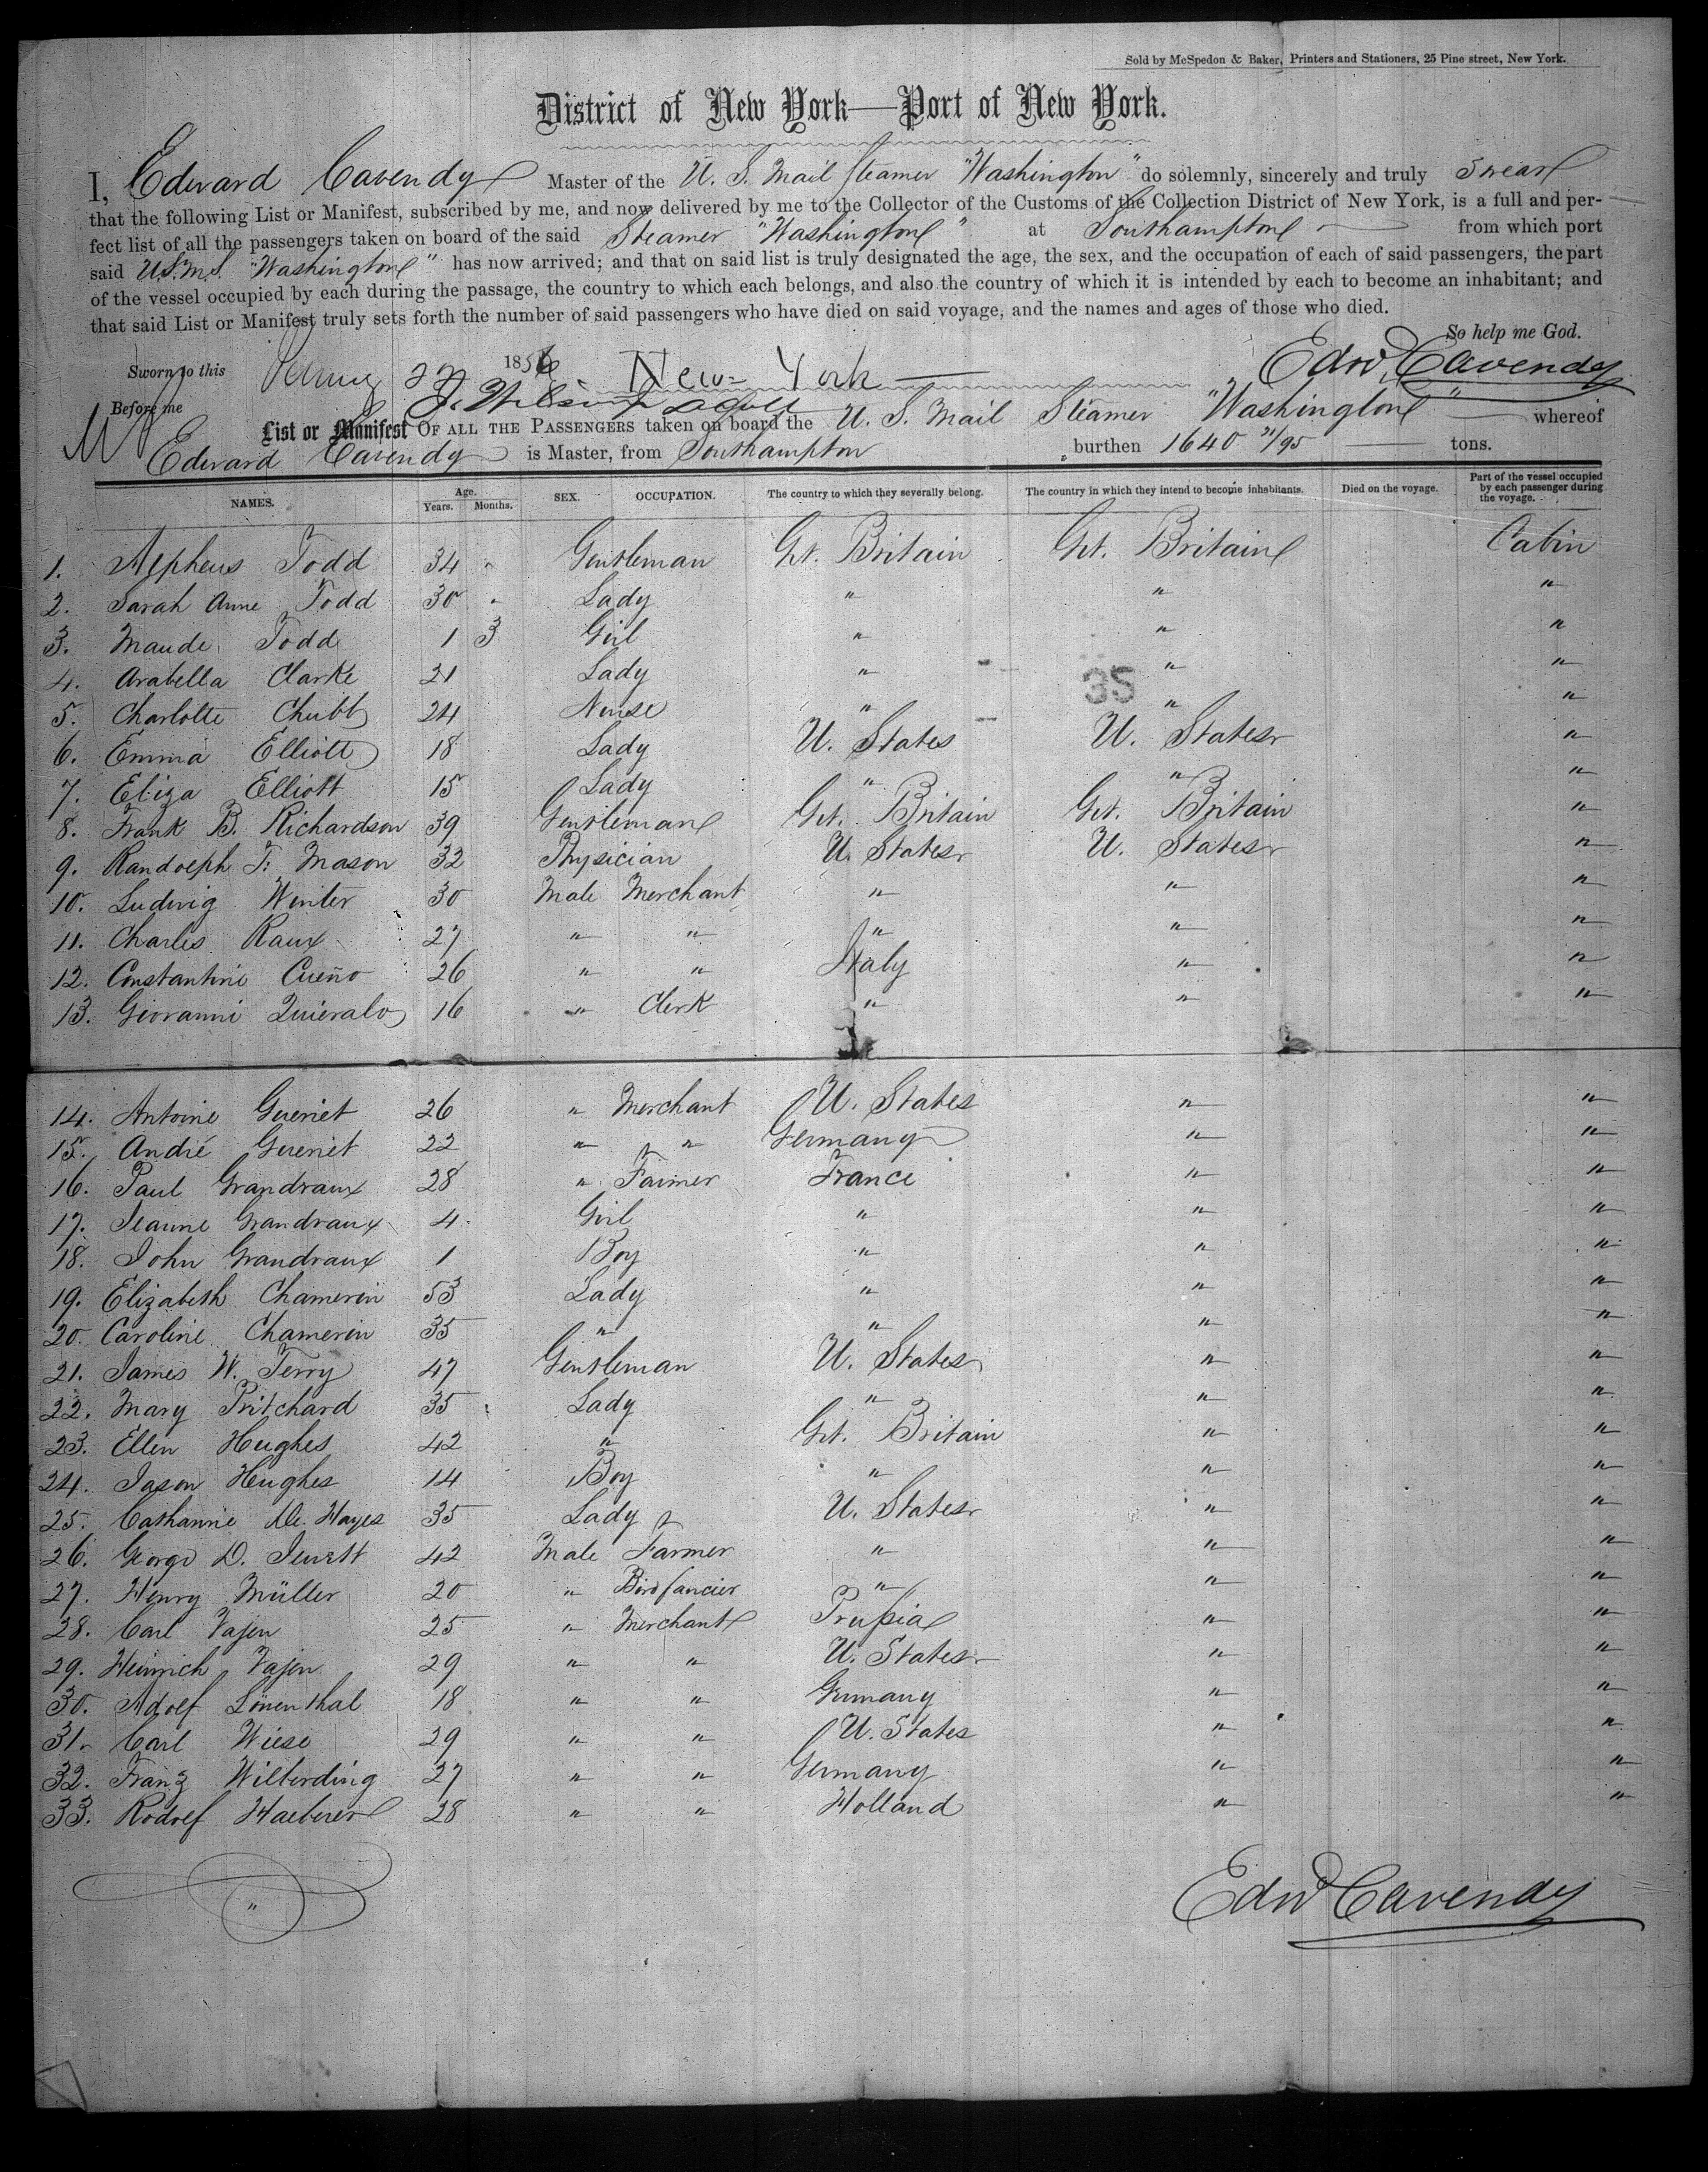 Sold by McSpedon & Baker, Printers and Stationers, 25 Pine street, New York.
District of New York—Port of New York.
I, Edward Cavendy Master of the U. S. Mail Steamer "Washington" do solemnly, sincerely and truly swear
that the following List or Manifest, subscribed by me, and now delivered by me to the Collector of the Customs of the Collection District of New York, is a full and per-
fect list of all the passengers taken on board of the said Steamer "Washington" at Southampton from which port
said U.S.M.S. "Washington" has now arrived; and that on said list is truly designated the age, the sex, and the occupation of each of said passengers, the part
of the vessel occupied by each during the passage, the country to which each belongs, and also the country of which it is intended by each to become an inhabitant; and
that said List or Manifest truly sets forth the number of said passengers who have died on said voyage, and the names and ages of those who died.
So help me God.
Sworn to this 1856 New-York Edwd Cavendy
Before me
List or Manifest OF ALL THE PASSENGERS taken on board the U. S. Mail Steamer "Washington" whereof
Edward Cavendy is Master, from Southampton burthen 1640 21/95 tons.
NAMES. Age. Years. Months. SEX. OCCUPATION. The country to which they severally belong. The country in which they intend to become inhabitants. Died on the voyage. Part of the vessel occupied by each passenger during the voyage.
1. Alpheus Todd 34 " Gentleman Gt. Britain Gt. Britain Cabin
2. Sarah Anne Todd 30 " Lady " " "
3. Maude Todd 1 3 Girl " " "
4. Arabella Clarke 21 Lady " " "
35
5. Charlotte Chubb 24 Nurse " " "
6. Emma Elliott 18 Lady U. States U. States "
7. Eliza Elliott 15 Lady " " "
8. Frank B. Richardson 39 Gentleman Gt. Britain Gt. Britain "
9. Randolph F. Mason 32 Physician U. States U. States "
10. Ludwig Winter 30 Male Merchant " " "
11. Charles Raux 27 " " " " "
12. Constantine Cueño 26 " " Italy " "
13. Giovanni Quieralo 16 " Clerk " " "
14. Antoine Gueriet 26 " Merchant U. States " "
15. André Gueriet 22 " " Germany " "
16. Paul Grandraux 28 " Farmer France " "
17. Jeanne Grandraux 4 Girl " " "
18. John Grandraux 1 Boy " " "
19. Elizabeth Chamerin 53 Lady " " "
20. Caroline Chamerin 35 " " " "
21. James W. Terry 47 Gentleman U. States " "
22. Mary Pritchard 35 Lady " " "
23. Ellen Hughes 42 " Gt. Britain " "
24. Jason Hughes 14 Boy " " "
25. Catharine De Hayes 35 Lady U. States " "
26. George D. Jewett 42 Male Farmer " " "
27. Henry Müller 20 " Bird fancier " " "
28. Carl Vajen 25 " Merchant Prussia " "
29. Heinrich Vajen 29 " " U. States " "
30. Adolf Löwenthal 18 " " Germany " "
31. Carl Wiese 29 " " U. States " "
32. Franz Wilberding 27 " " Germany " "
33. Rodolf Haeberer 28 " " Holland " "
"
Edwd Cavendy